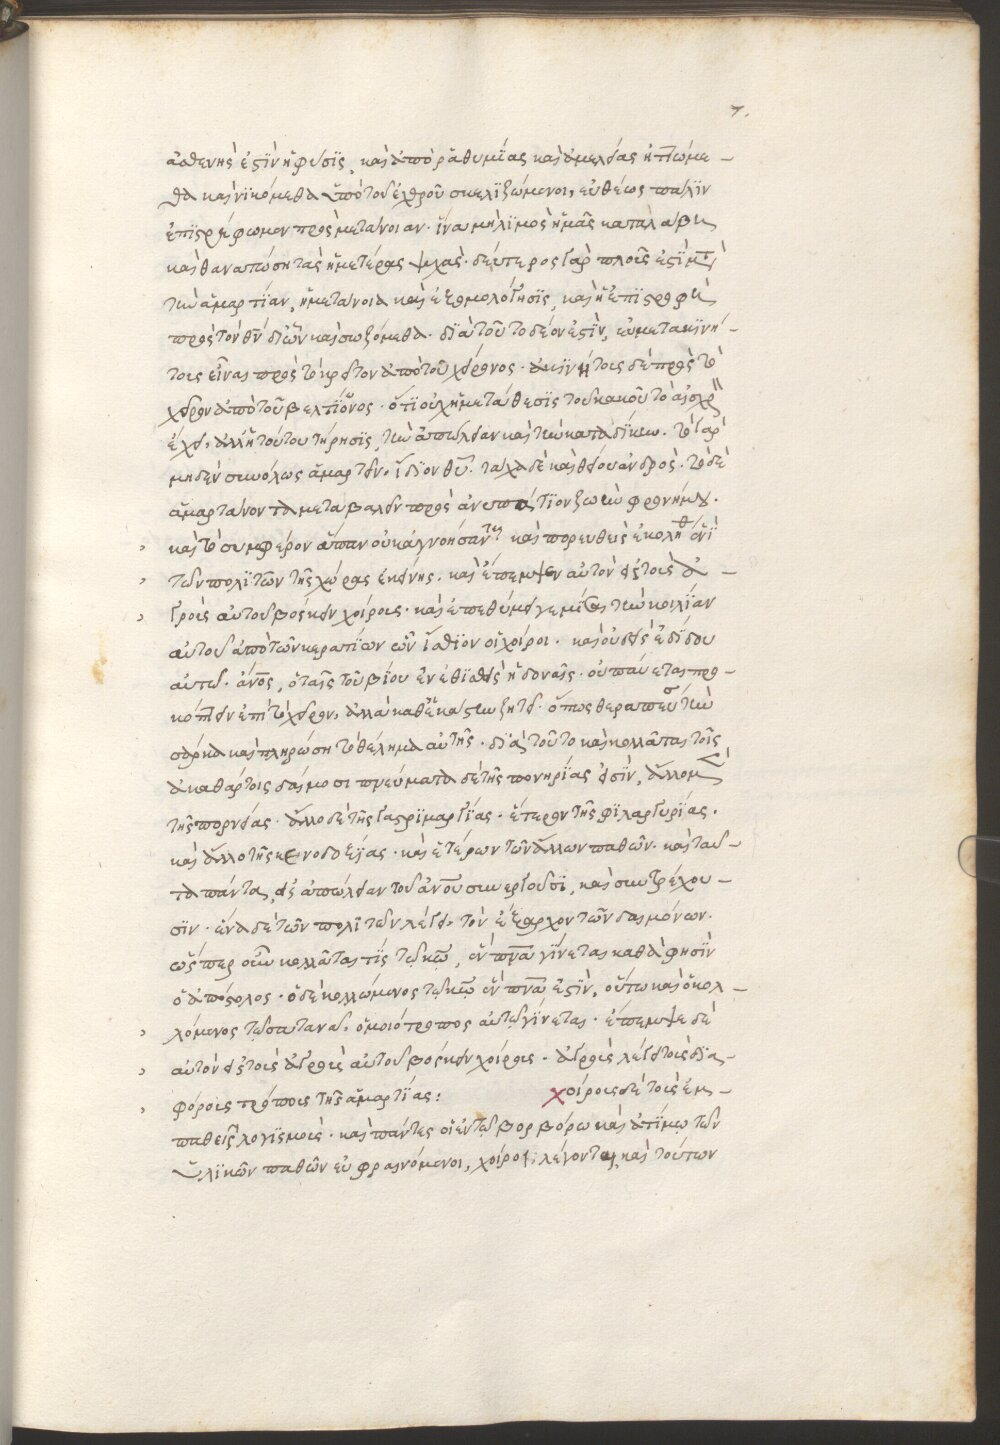 7.
ἀσθενής ἐστὶν ἡ φύσις, καὶ ἀπὸ ῥαθυμίας καὶ ἀμελείας ἡττώμε-
θα καὶ νικόμεθα ὑπὸ τοῦ ἐχθροῦ σκελιζώμενοι, εὐθέως πάλιν
ἐπιστρέφωμεν πρὸς μετάνοιαν· ἵνα μὴ λιμὸς ἡμᾶς καταλάβῃ
καὶ θανατώσῃ τὰς ἡμετέρας ψυχάς· δεύτερος γὰρ πλοῦς ἐστὶ μετὰ
τὴν ἁμαρτίαν, ἡ μετάνοια καὶ ἐξομολόγησις, καὶ ἡ ἐπιστροφὴ
πρὸς τὸν θν̄ δι' ὧν καὶ σωζόμεθα· διὰ τοῦτο δέον ἐστὶν, εὐμετακινή-
τοις εἶναι πρὸς τὸ κρεῖττον ἀπὸ τοῦ χείρονος· ἀκινήτοις δὲ πρὸς τὸ
χεῖρον ἀπὸ τοῦ βελτίονος· ὅτι οὐχ ἡ μετάθεσις τοῦ κακοῦ τὸ αἰσχρὸν
ἔχει, ἀλλ' ἡ τούτου τήρησις, τὴν ἀπώλειαν καὶ τὴν καταδίκην· τὸ γὰρ
μηδὲν συνόλως ἁμαρτεῖν, ἴδιον θῡ· τάχα δὲ καὶ θείου ἀνδρός· τὸ δὲ
ἁμαρτάνοντα μεταβαλεῖν πρὸς ἀνυπαίτιον ζωὴν φρονήμου·
καὶ τὸ συμφέρον ἅπαν οὐκ ἀγνοήσαντος καὶ πορευθεὶς ἐκολήθη ἑνὶ
τῶν πολιτῶν τῆς χώρας ἐκείνης· καὶ ἔπεμψεν αὐτὸν εἰς τοὺς ἀ-
γροὺς αὐτοῦ βόσκειν χοίρους· καὶ ἐπεθύμει γεμίσαι τὴν κοιλίαν
αὐτοῦ ἀπὸ τῶν κερατίων ὧν ἤσθιον οἱ χοίροι· καὶ οὐδεὶς ἐδίδου
αὐτῷ· ἄνος, ὁ ταῖς τοῦ βίου ἐνεθισθεὶς ἡδοναῖς· οὐ παύεται προ-
κόπτειν ἐπὶ τὸ χεῖρον, ἀλλὰ καθ' ἑκάστην ζητεῖ· ὅπως θεραπεύσῃ τὴν
σάρκα καὶ πληρώσῃ τὸ θέλημα αὐτῆς· διὰ τοῦτο καὶ κολλᾶται τοῖς
ἀκαθάρτοις δαίμοσι πνεύματα δὲ τῆς πονηρίας εἰσὶν, ἄλλο μὲν
τῆς πορνείας· ἄλλο δὲ τῆς γαστριμαργίας· ἕτερον τῆς φιλαργυρίας·
καὶ ἄλλο τῆς κενοδοξίας· καὶ ἑτέρων τῶν ἄλλων παθῶν· καὶ ταῦ-
τα πάντα, εἰς ἀπώλειαν τοῦ ἀνου συνεργοῦσι, καὶ συντρέχου-
σιν· ἕνα δὲ τῶν πολιτῶν λέγει, τὸν ἔξαρχον τῶν δαιμόνων·
ὥσπερ οὖν κολλᾶται τίς τῷ κω̄, ἓν πνα γίνεται καθὰ φησὶν
ὁ ἀπόστολος· ὁ δὲ κολλώμενος τῷ κω̄ ἓν πνα ἐστὶν, οὕτω καὶ ὁ κολ-
λόμενος τῷ σατανᾶ, ὁμοιότροπος αὐτῷ γίνεται· ἔπεμψε δὲ
αὐτὸν εἰς τοὺς ἀγροὺς αὐτοῦ βόσκειν χοίρους· ἀγροὺς λέγει τοὺς δια-
φόρους τρόπους τῆς ἁμαρτίας: χοίρους δὲ τοὺς ἐμ-
παθεῖς λογισμούς· καὶ πάντες οἱ ἐν τῷ βορβόρω καὶ ἀτίμω τῶν
ὑλικῶν παθῶν εὐφραινόμενοι, χοίροι λέγονται, καὶ τούτων